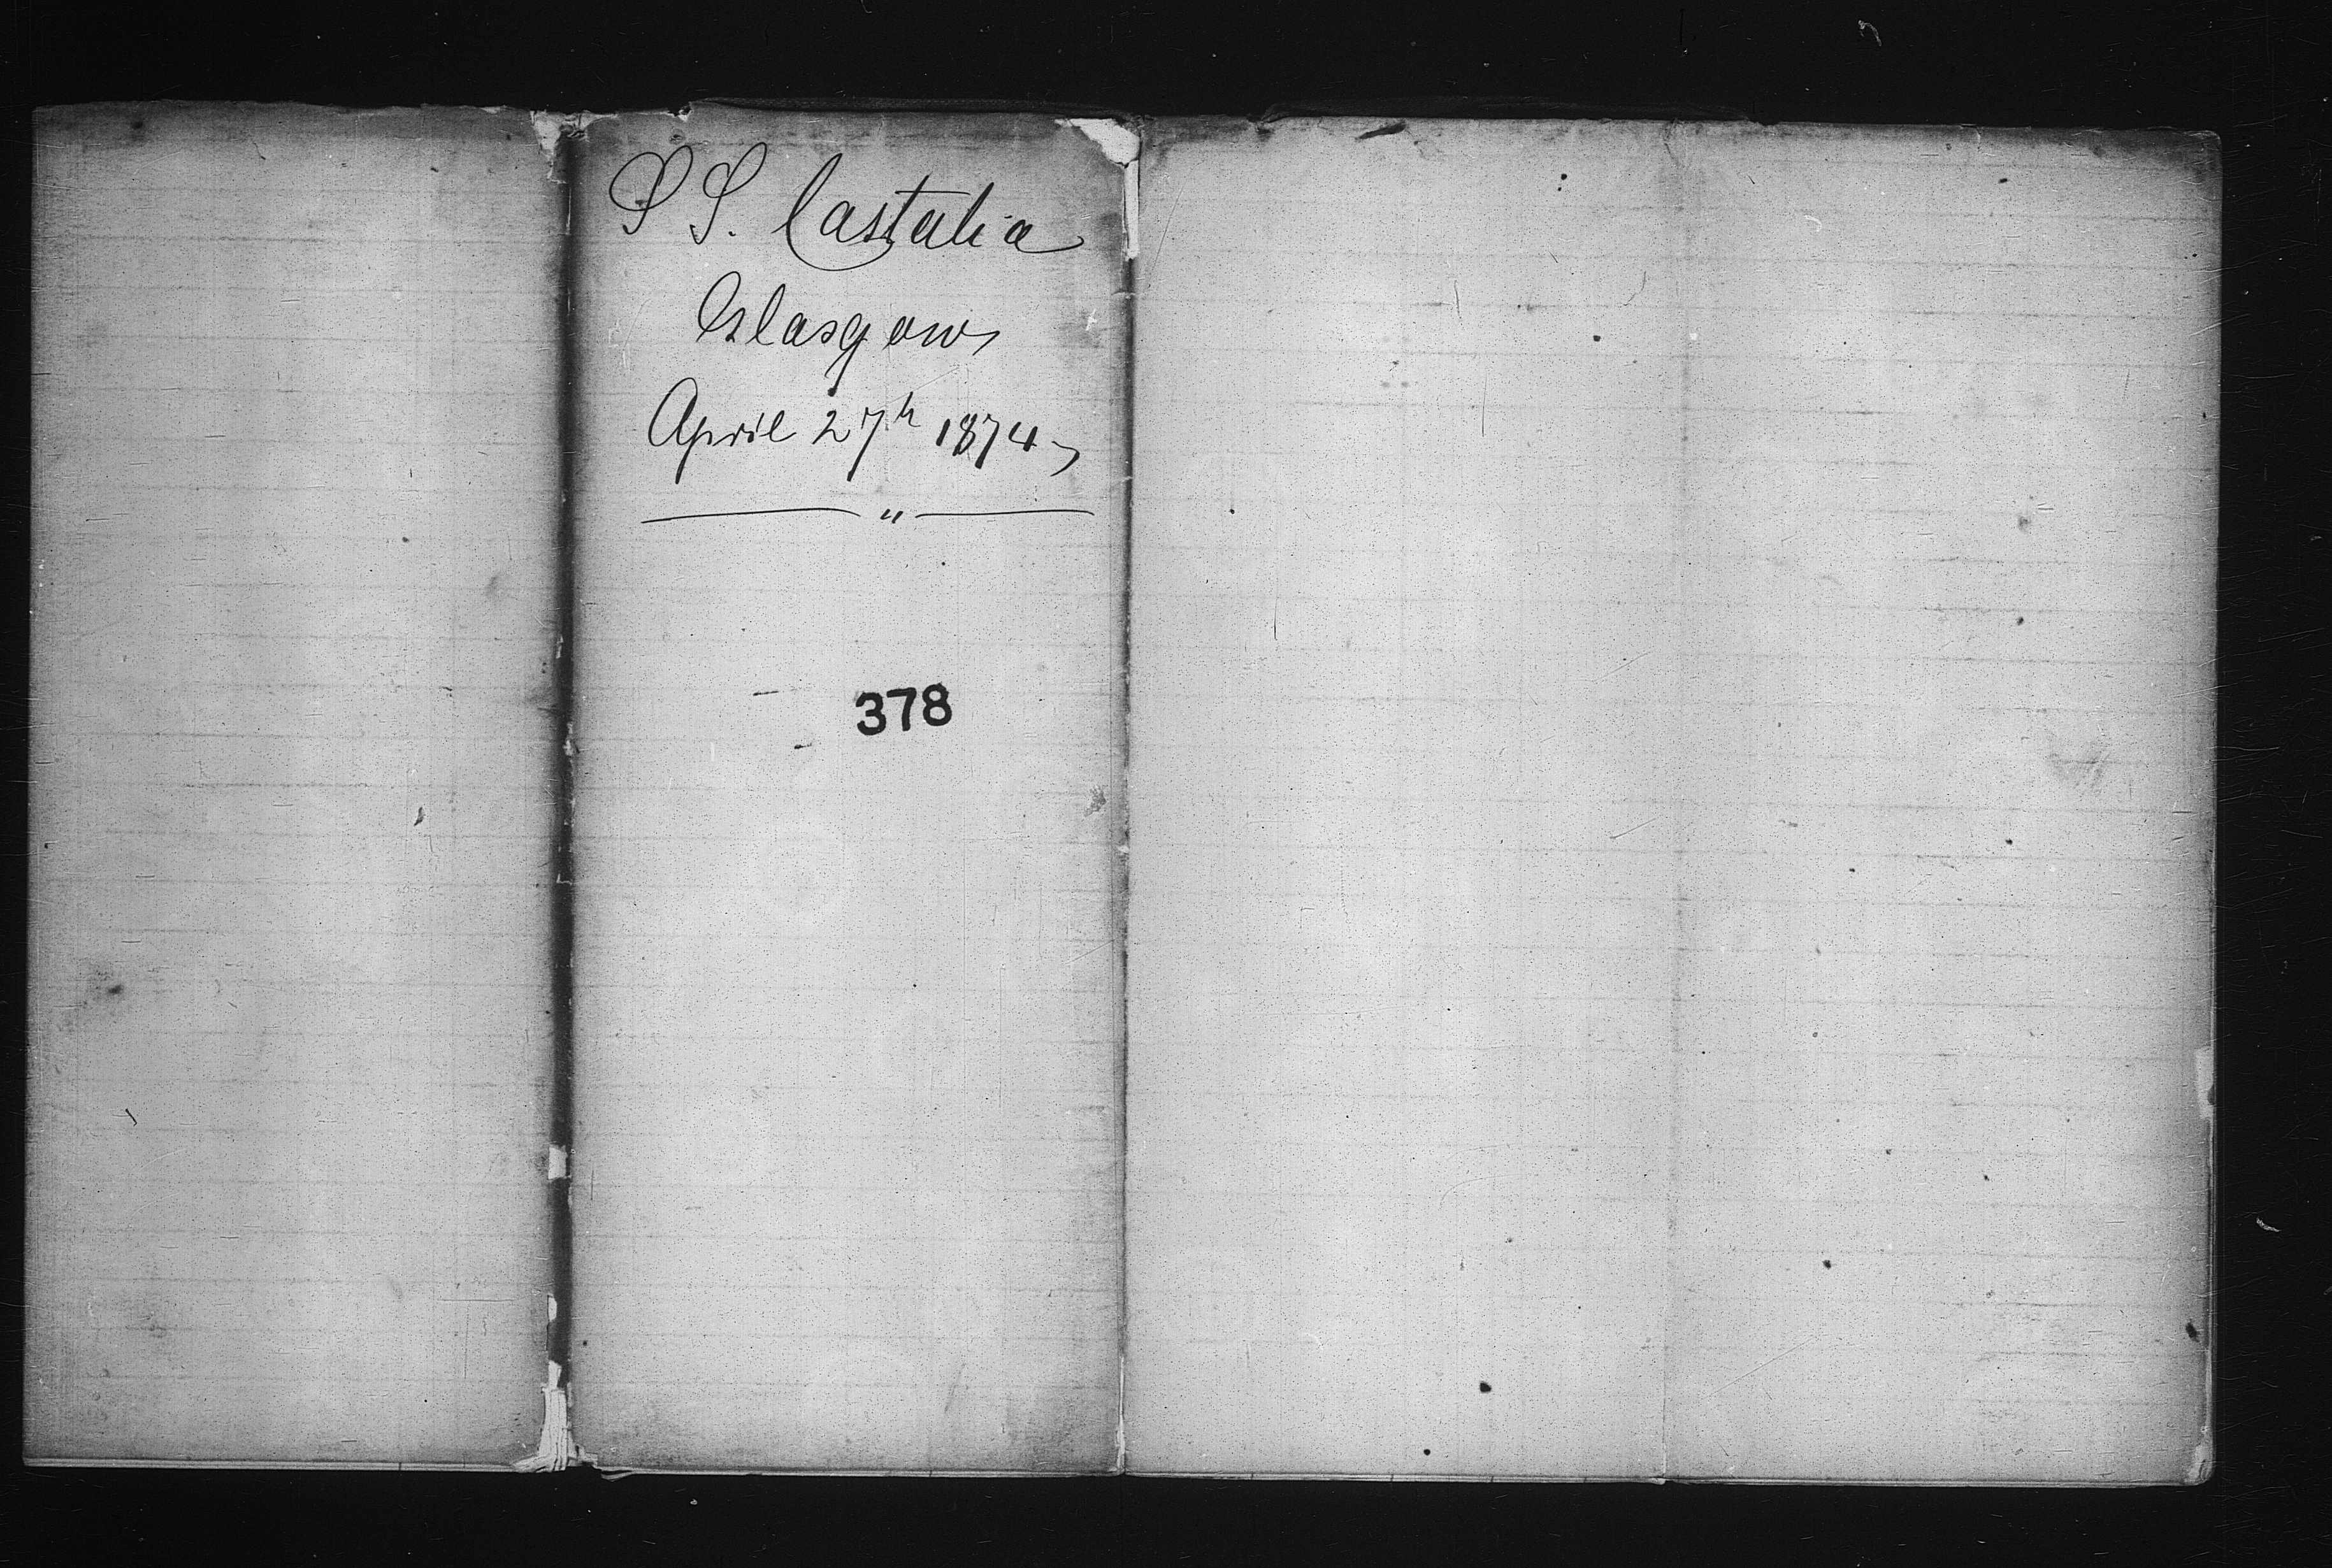 S S. Castalia
Glasgow
April 27th 1874
"
378